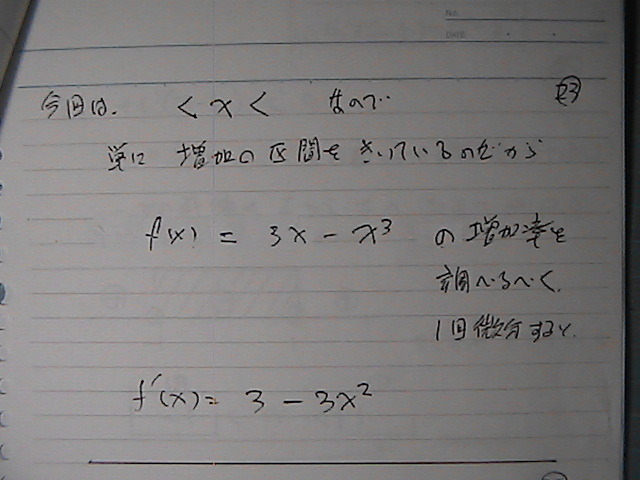 No.
DATE
今回は. < x < なので
単に 増加の区間をきいているのだから
f(x) = 3x − x³ の増加率を
調べるべく.
1回微分すると.
f'(x) = 3 − 3x²